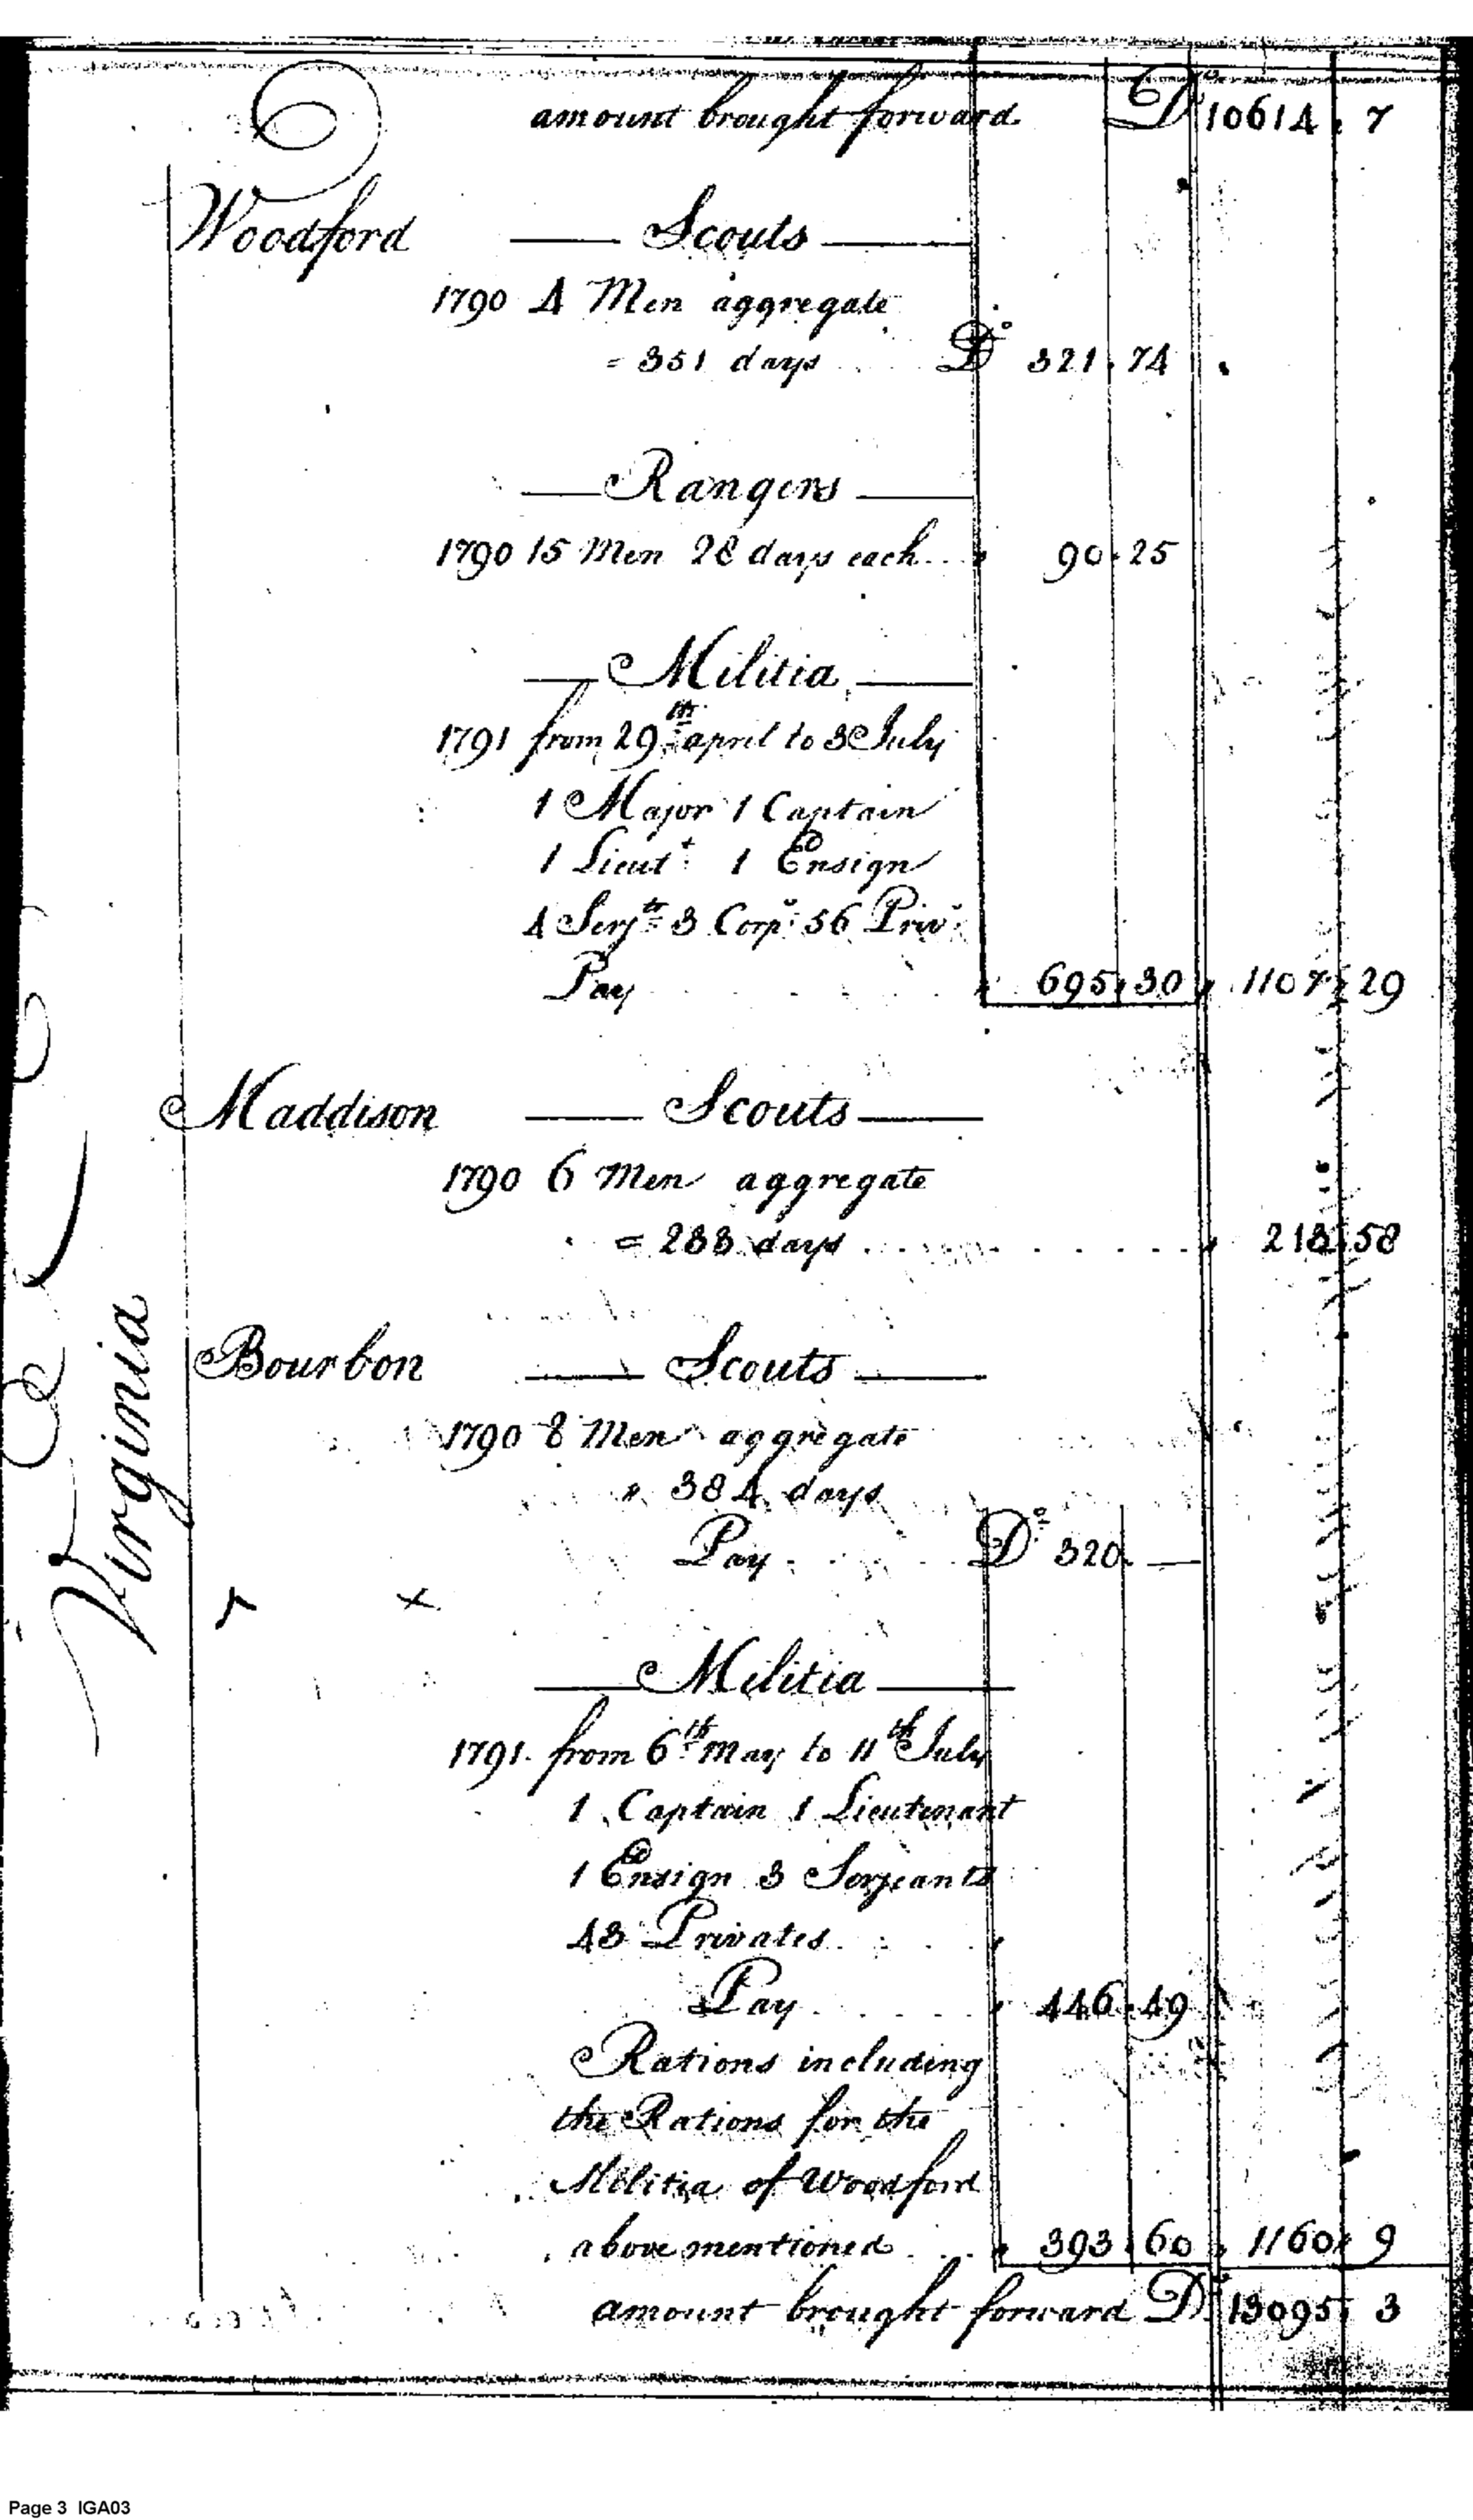 amount brought forward Dº 10614 . 7
Woodford — Scouts —
1790 4 Men aggregate
= 351 days .... Dº 321 . 74
— Rangers —
1790 15 Men 28 days each ... 90 . 25
— Militia —
1791 from 29th april to 3 July
1 Major 1 Captain
1 Lieut.t 1 Ensign
4 Serjts 3 Corp.s 56 Priv.s
Pay .... 695 . 30 1107 . 29
Maddison — Scouts —
1790 6 Men aggregate
= 233 days .......... 213 . 58
Bourbon — Scouts —
1790 8 Men aggregate
" 384 days
Pay .... Dº 320 . —
— Militia —
1791 from 6th may to 11th July
1 Captain 1 Lieutenant
1 Ensign 3 Serjeants
43 Privates ....
Pay .... 446 . 49
Rations including
the Rations for the
Militia of Woodford
above mentioned .... 393 . 60 1160 . 9
amount brought forward Dº 13095 . 3
Virginia
Page 3 IGA03